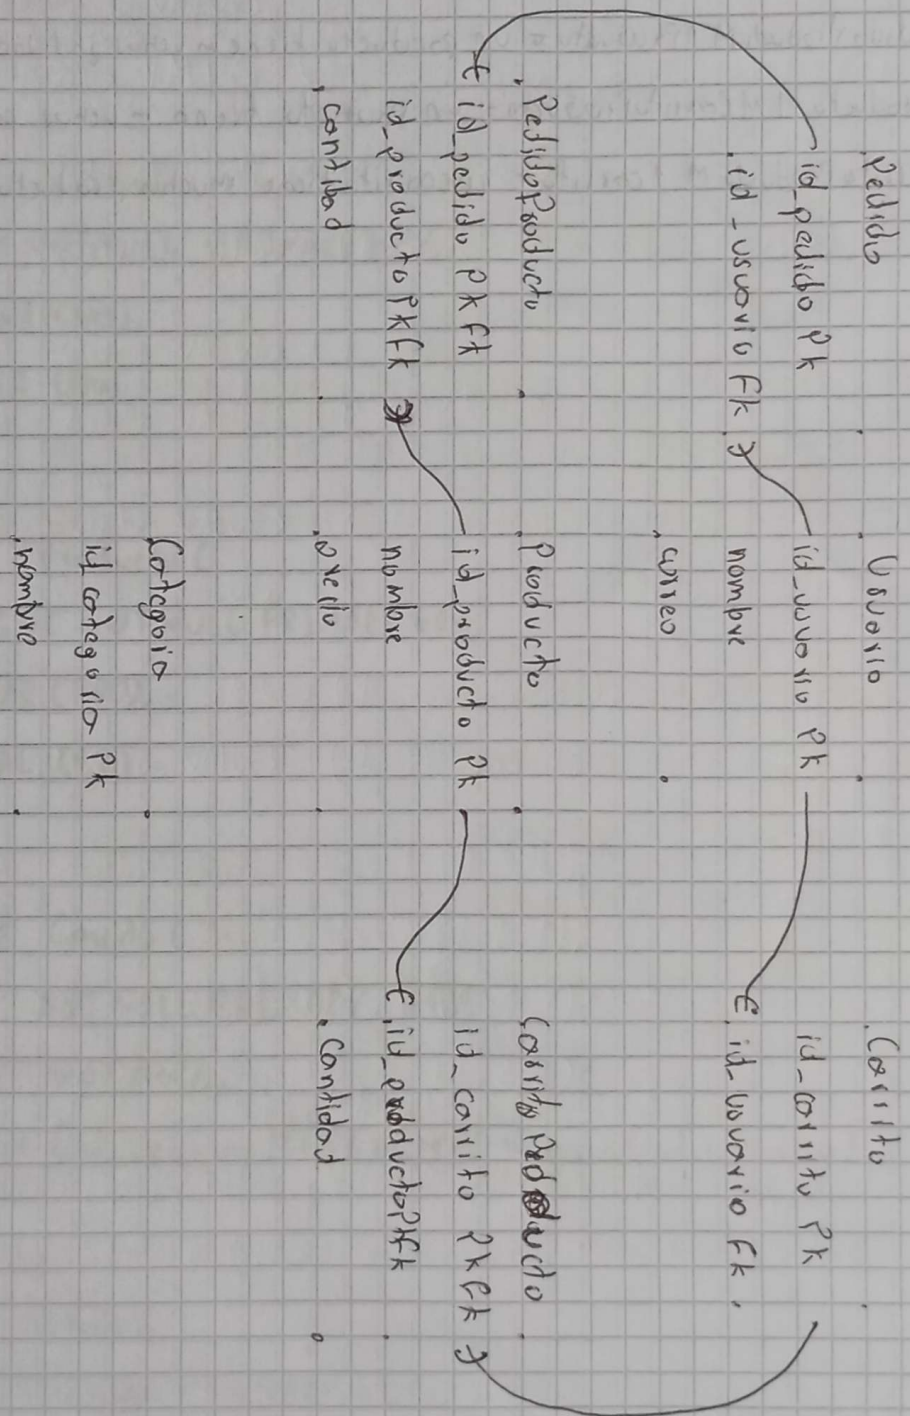 Pedido
id_pedido Pk
id_usuario Fk
Usuario
id_usuario Pk
nombre
correo
Carrito
id_carrito Pk
id_usuario Fk
PedidoProducto
id_pedido PkFk
id_producto PkFk
cantidad
Producto
id_producto Pk
nombre
precio
Carrito Producto
id_carrito PkFk
id_productoPkFk
Cantidad
Categoria
id_categoria Pk
nombre